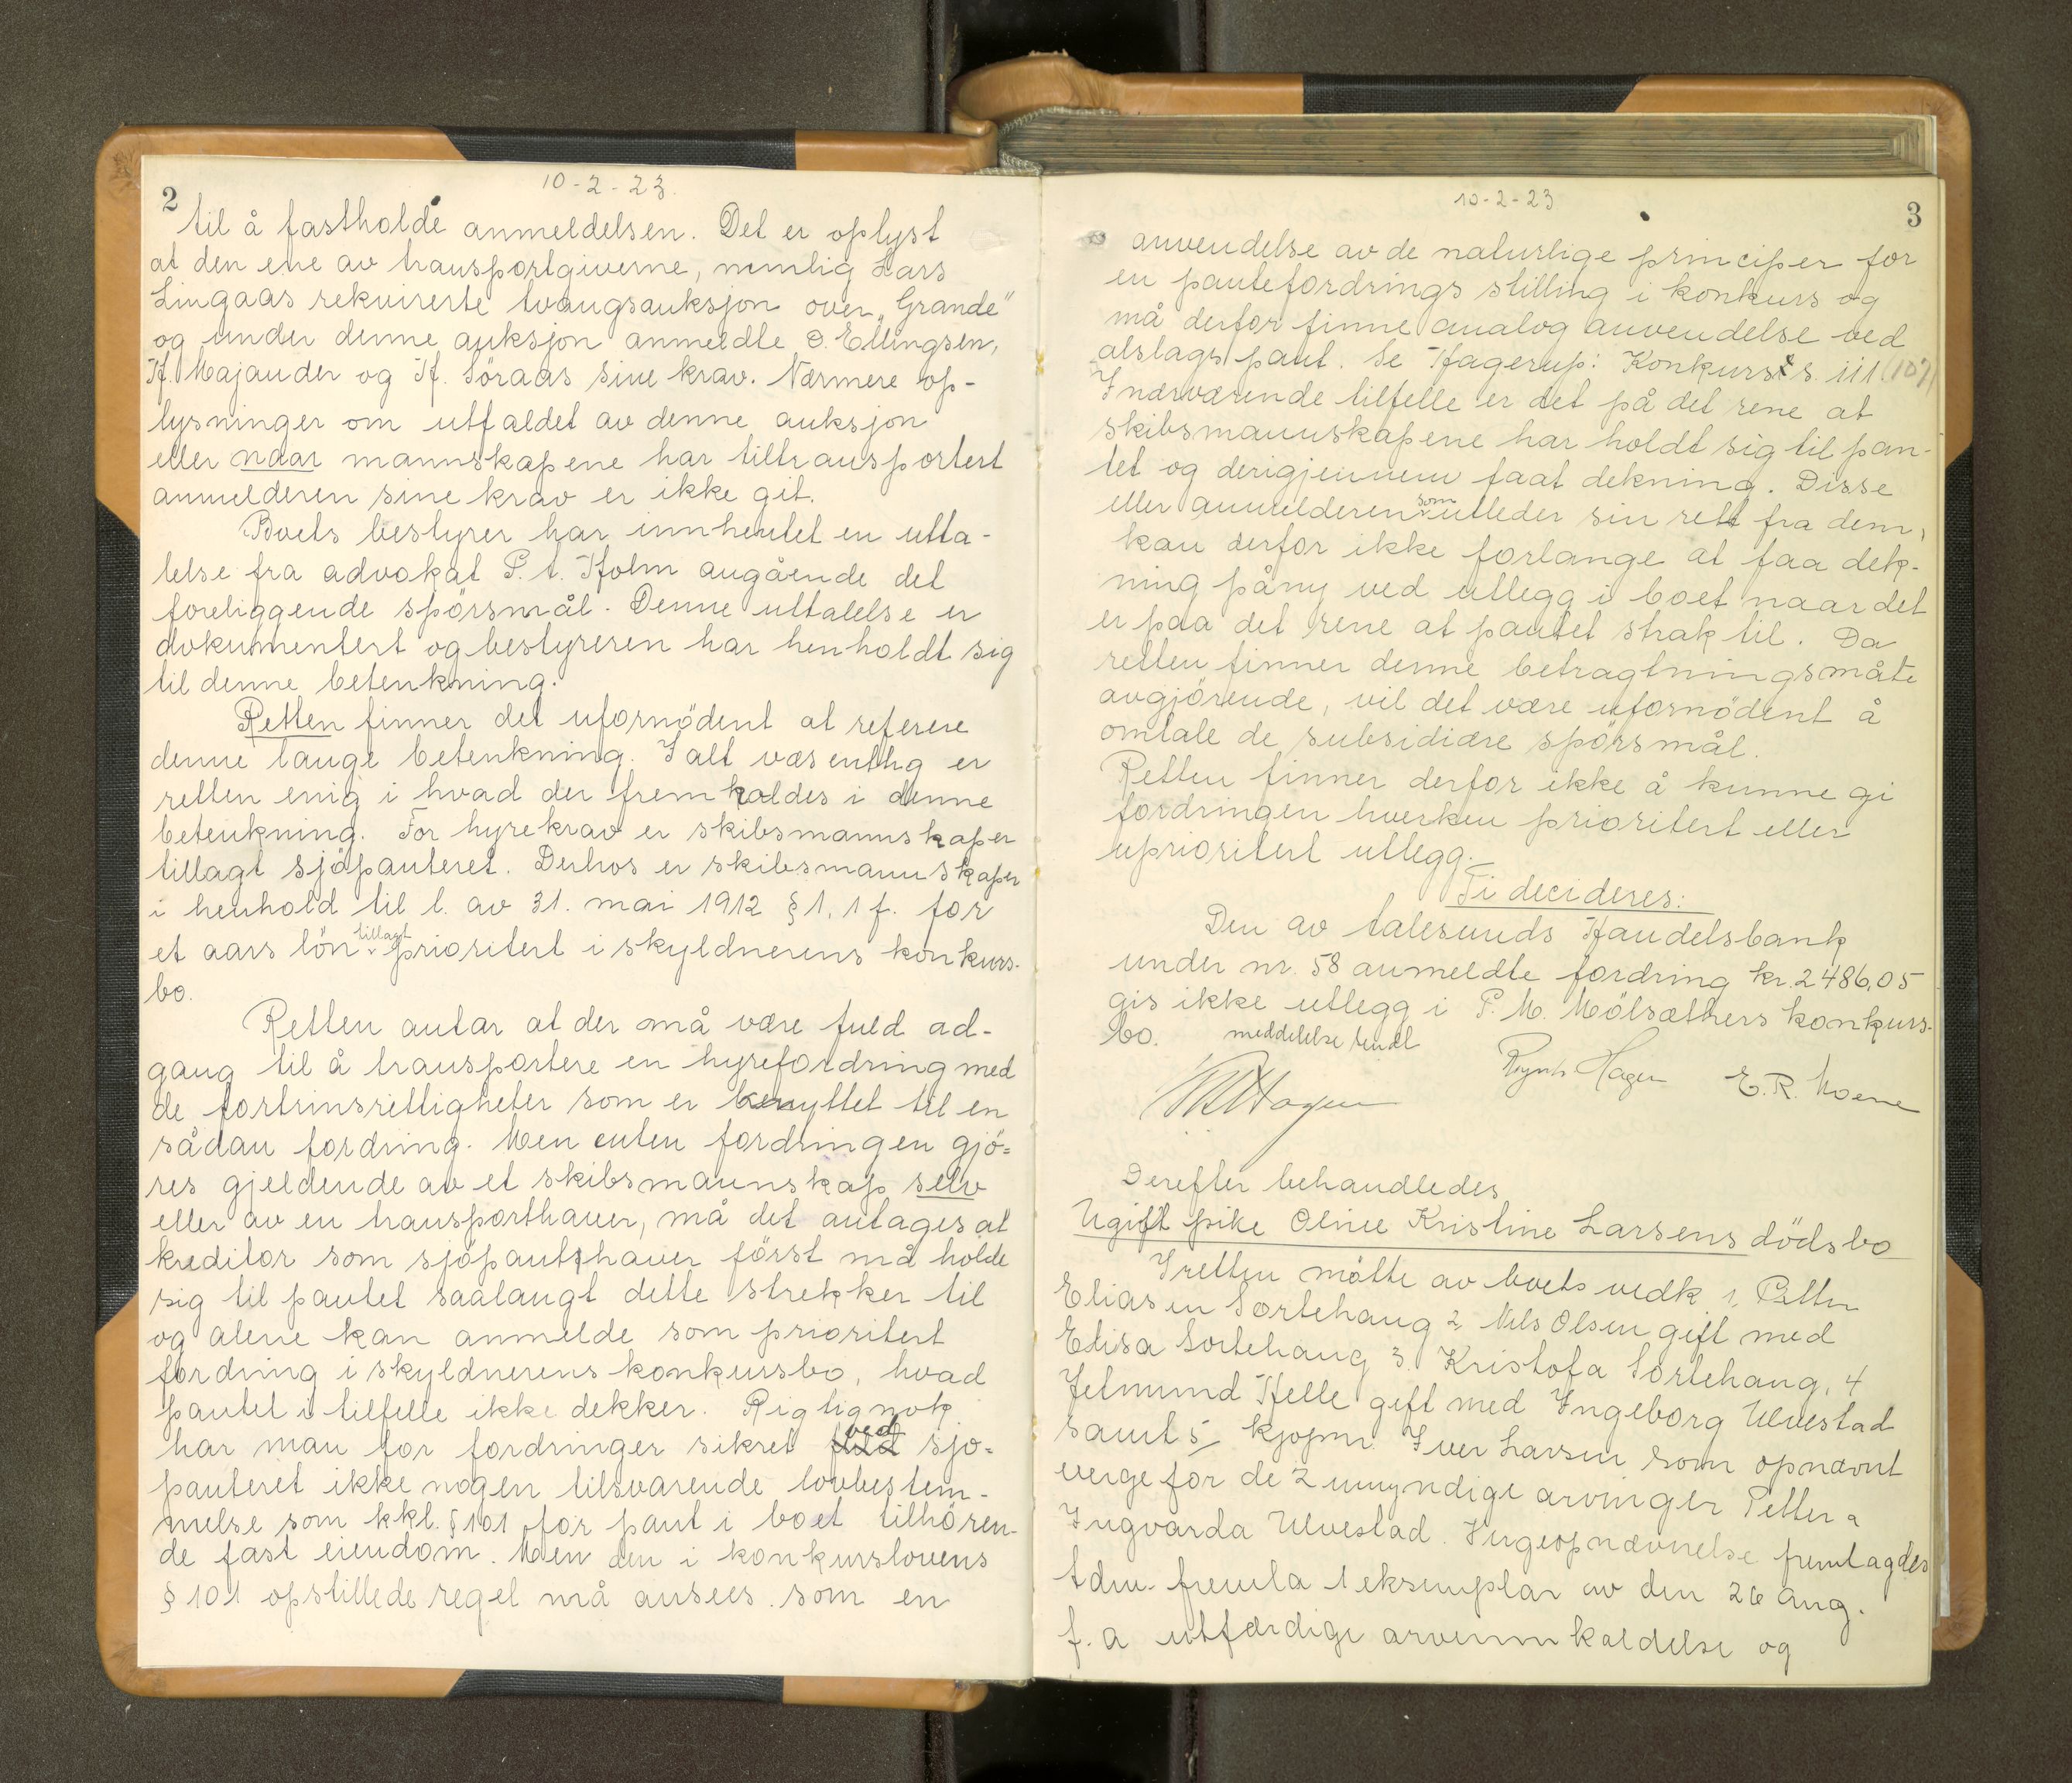 2
10-2-23.
til å fastholde anmeldelsen. Det er oplyst
at den ene av transportgiverne, nemlig Lars
Lingaas rekvirerte tvangsauksjon over „Grande"
og under denne auksjon anmeldte O. Ellingsen,
H. Majander og H. Söraas sine krav. Nærmere op-
lysninger om utfaldet av denne auksjon
eller naar mannskapene har tiltransportert
anmelderen sine krav er ikke git.
Boets bestyrer har innhentet en utta-
lelse fra advokat P. A. Holm angående det
foreliggende spörsmål. Denne uttalelse er
dokumentert og bestyreren har henholdt sig
til denne betenkning.
Retten finner det ufornödent at referere
denne lange betenkning. I alt væsentlig er
retten enig i hvad der fremholdes i denne
betenkning. For hyrekrav er skibsmannskaper
tillagt sjöpanteret. Derhos er skibsmannskaper
i henhold til l. av 31. mai 1912 § 1, 1 f. for
et aars lön tillagt prioritert i skyldnerens konkurs-
bo.
Retten antar at der må være fuld ad-
gang til å transportere en hyrefordring med
de fortrinsrettigheter som er benyttet til en
sådan fordring. Men enten fordringen gjö-
res gjeldende av et skibsmannskap selv
eller av en transporthaver, må det antages at
kreditor som sjöpanthaver först må holde
sig til pantet saalangt dette strekker til
og alene kan anmelde som prioritert
fordring i skyldnerens konkursbo, hvad
pantet i tilfelle ikke dekker. Rigtignok
har man for fordringer sikret ved sjö-
panteret ikke nogen tilsvarende lovbestem-
melse som kkl. § 101 for pant i boet tilhören-
de fast eiendom. Men den i konkurslovens
§ 101 opstillede regel må ansees som en
10-2-23
3
anvendelse av de naturlige principer for
en pantefordrings stilling i konkurs og
må derfor finne analog anvendelse ved
alslags pant. Se Hagerup: Konkurs s. 111 (107)
I nærværende tilfelle er det på det rene at
skibsmannskapene har holdt sig til pan-
tet og derigjennem faat dekning. Disse
eller anmelderen som utleder sin rett fra dem,
kan derfor ikke forlange at faa dek-
ning påny ved utlegg i boet naar det
er paa det rene at pantet strak til. Da
retten finner denne betragtningsmåte
avgjörende, vil det være ufornödent å
omtale de subsidiære spörsmål.
Retten finner derfor ikke å kunne gi
fordringen hverken prioritert eller
uprioritert utlegg.
Ti decideres:
Den av Aalesunds Handelsbank
under nr. 58 anmeldte fordring kr. 2486,05
gis ikke utlegg i P. M. Mölsæthers konkurs-
bo. meddelelse sendt
Hagen E. R. Moene
Derefter behandledes
Ugift pike Oline Kristine Larsens dödsbo
I retten mötte av boets vedk. 1, Petter
Eliasen Sortehaug 2 Nils Olsen gift med
Elisa Sortehaug 3. Kristofa Sortehaug, 4
Jetmund Helle gift med Ingeborg Ulvestad
samt 5, kjøpm. Iver Larsen som opnævnt
verge for de 2 umyndige arvinger Petter a
Ingvarda Ulvestad. Vergeopnævnelse fremlagdes
Adm. fremla 1 eksemplar av den 26 aug.
f. a utfærdige arveinnkaldelse og